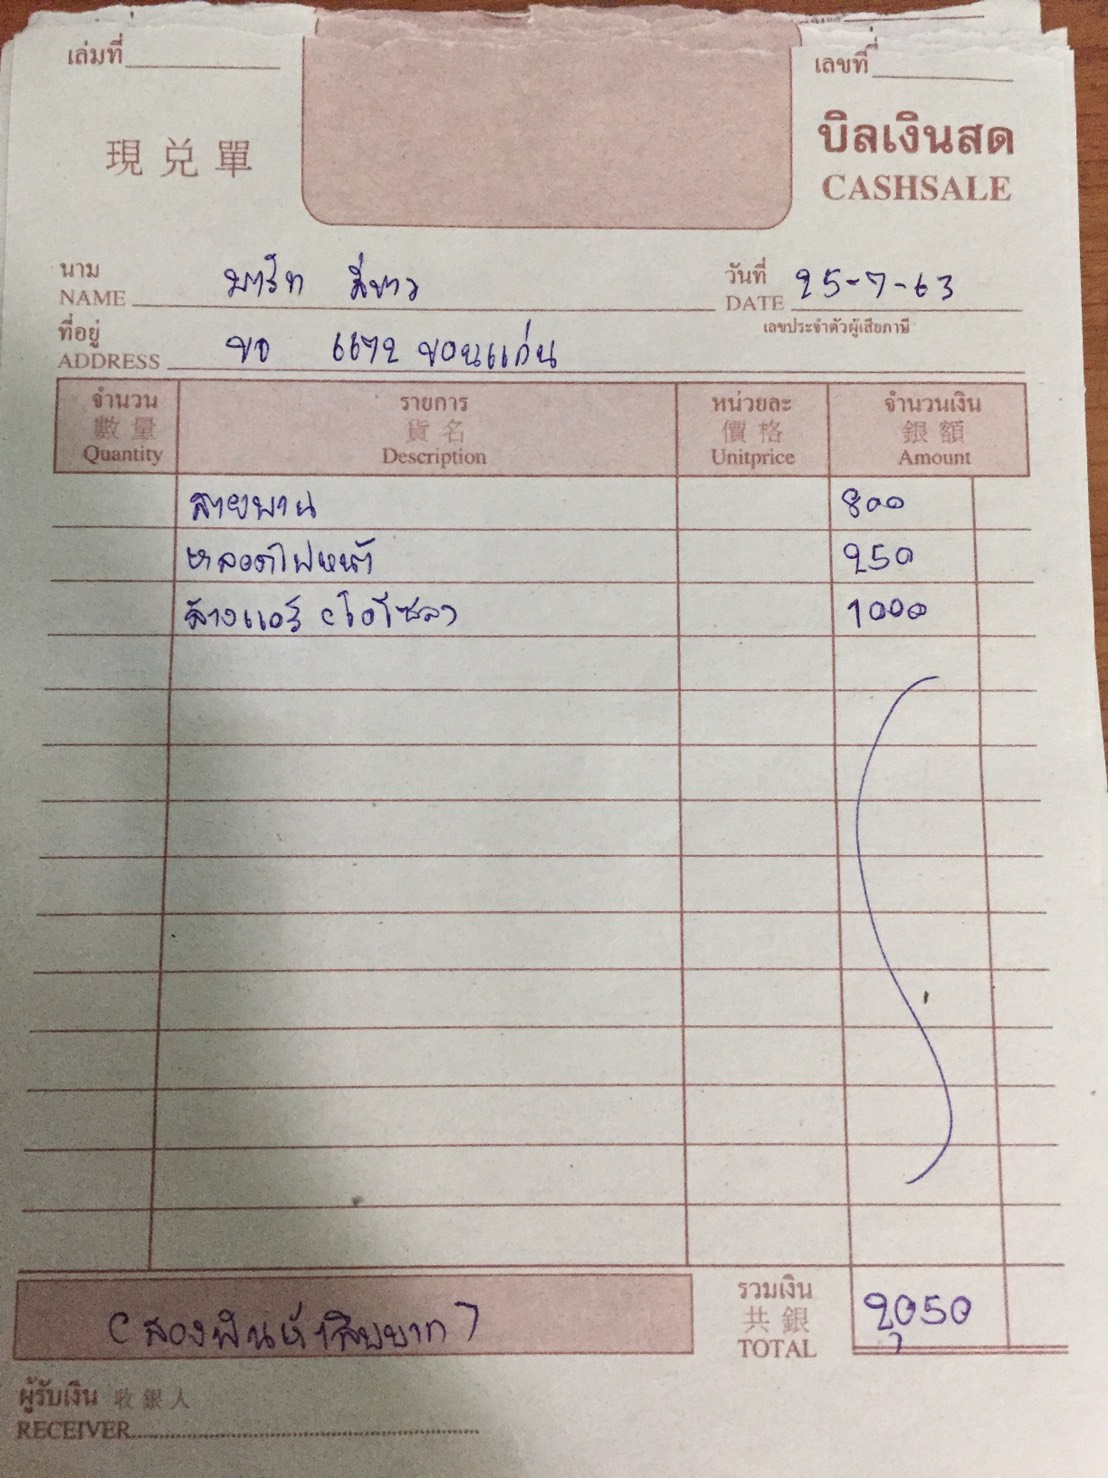 เล่มที่
เลขที่
現兑單
บิลเงินสด
CASHSALE
นาม
NAME
มาร์ท สีขาว
วันที่
DATE
25-7-63
ที่อยู่
ADDRESS
ขอ 6672 ขอนแก่น
เลขประจำตัวผู้เสียภาษี
จำนวน รายการ หน่วยละ จำนวนเงิน
數量 貨名 價格 銀額
Quantity Description Unitprice Amount
สายพาน 800
หลอดไฟหน้า 250
ล้างแอร์ (โอโซล) 1000
(สองพันห้าสิบบาท)
รวมเงิน
共銀
TOTAL
2,050
ผู้รับเงิน 收銀人
RECEIVER